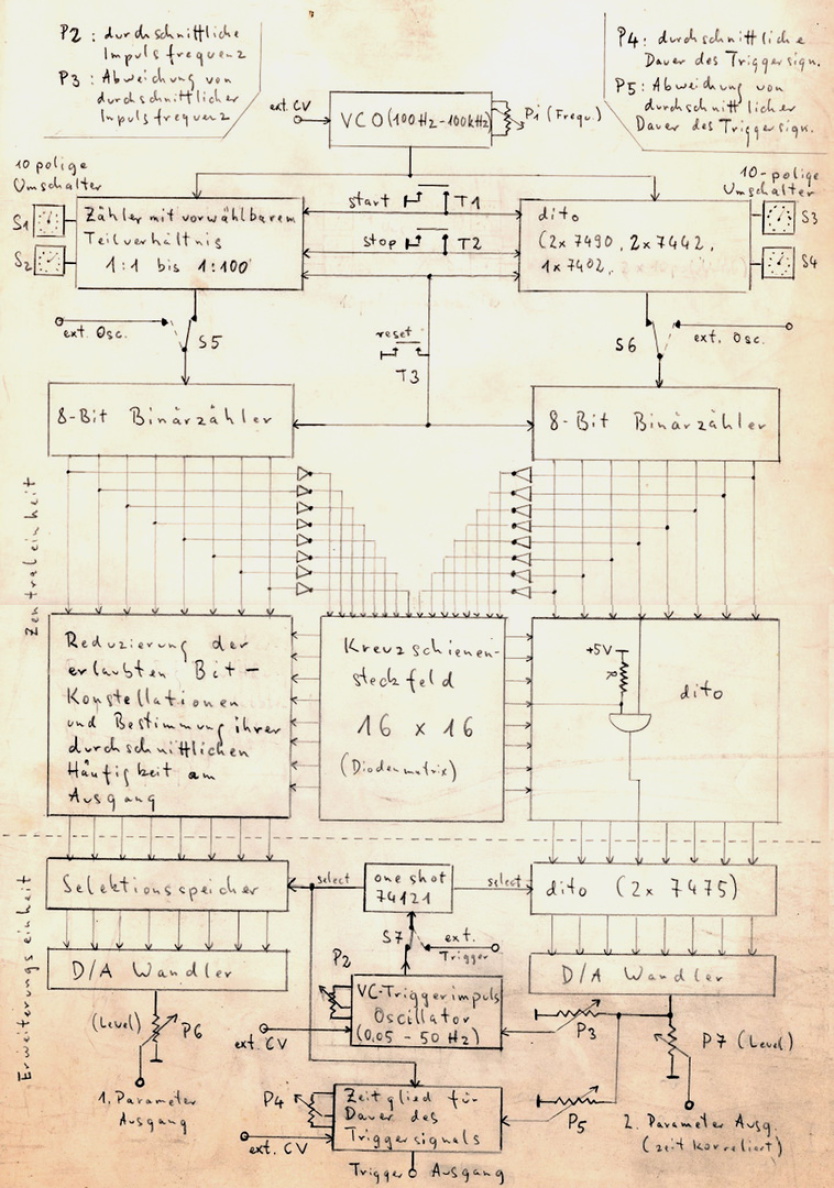 P2 : durchschnittliche
Impulsfrequenz
P3 : Abweichung von
durchschnittlicher
Impulsfrequenz
P4 : durchschnittliche
Dauer des Triggersign.
P5 : Abweichung von
durchschnittlicher
Dauer des Triggersign.
ext. CV
VCO (100Hz-100kHz)
P1 (Frequ.)
10 polige
Umschalter
10-polige
Umschalter
S1
S2
Zähler mit vorwählbarem
Teilverhältnis
1:1 bis 1:100
start
T1
stop
T2
dito
(2x 7490, 2x7442,
1x7402,
S3
S4
ext. Osc.
S5
reset
T3
S6
ext. Osc.
8-Bit Binärzähler
8-Bit Binärzähler
Zentraleinheit
Reduzierung der
erlaubten Bit-
Konstellationen
und Bestimmung ihrer
durchschnittlichen
Häufigkeit am
Ausgang
Kreuzschienen-
steckfeld
16 x 16
(Diodenmatrix)
+5V
R
dito
Erweiterungseinheit
Selektionsspeicher
select
one shot
74121
select
dito (2x 7475)
S7
ext.
Trigger
D/A Wandler
P2
D/A Wandler
VC-Triggerimpuls
Oscillator
(0,05 - 50 Hz)
(Level)
P6
ext. CV
P3
P7 (Level)
1. Parameter
Ausgang
P4
Zeitglied für
Dauer des
Triggersignals
ext. CV
P5
2. Parameter Ausg.
(zeit korreliert)
Trigger Ausgang